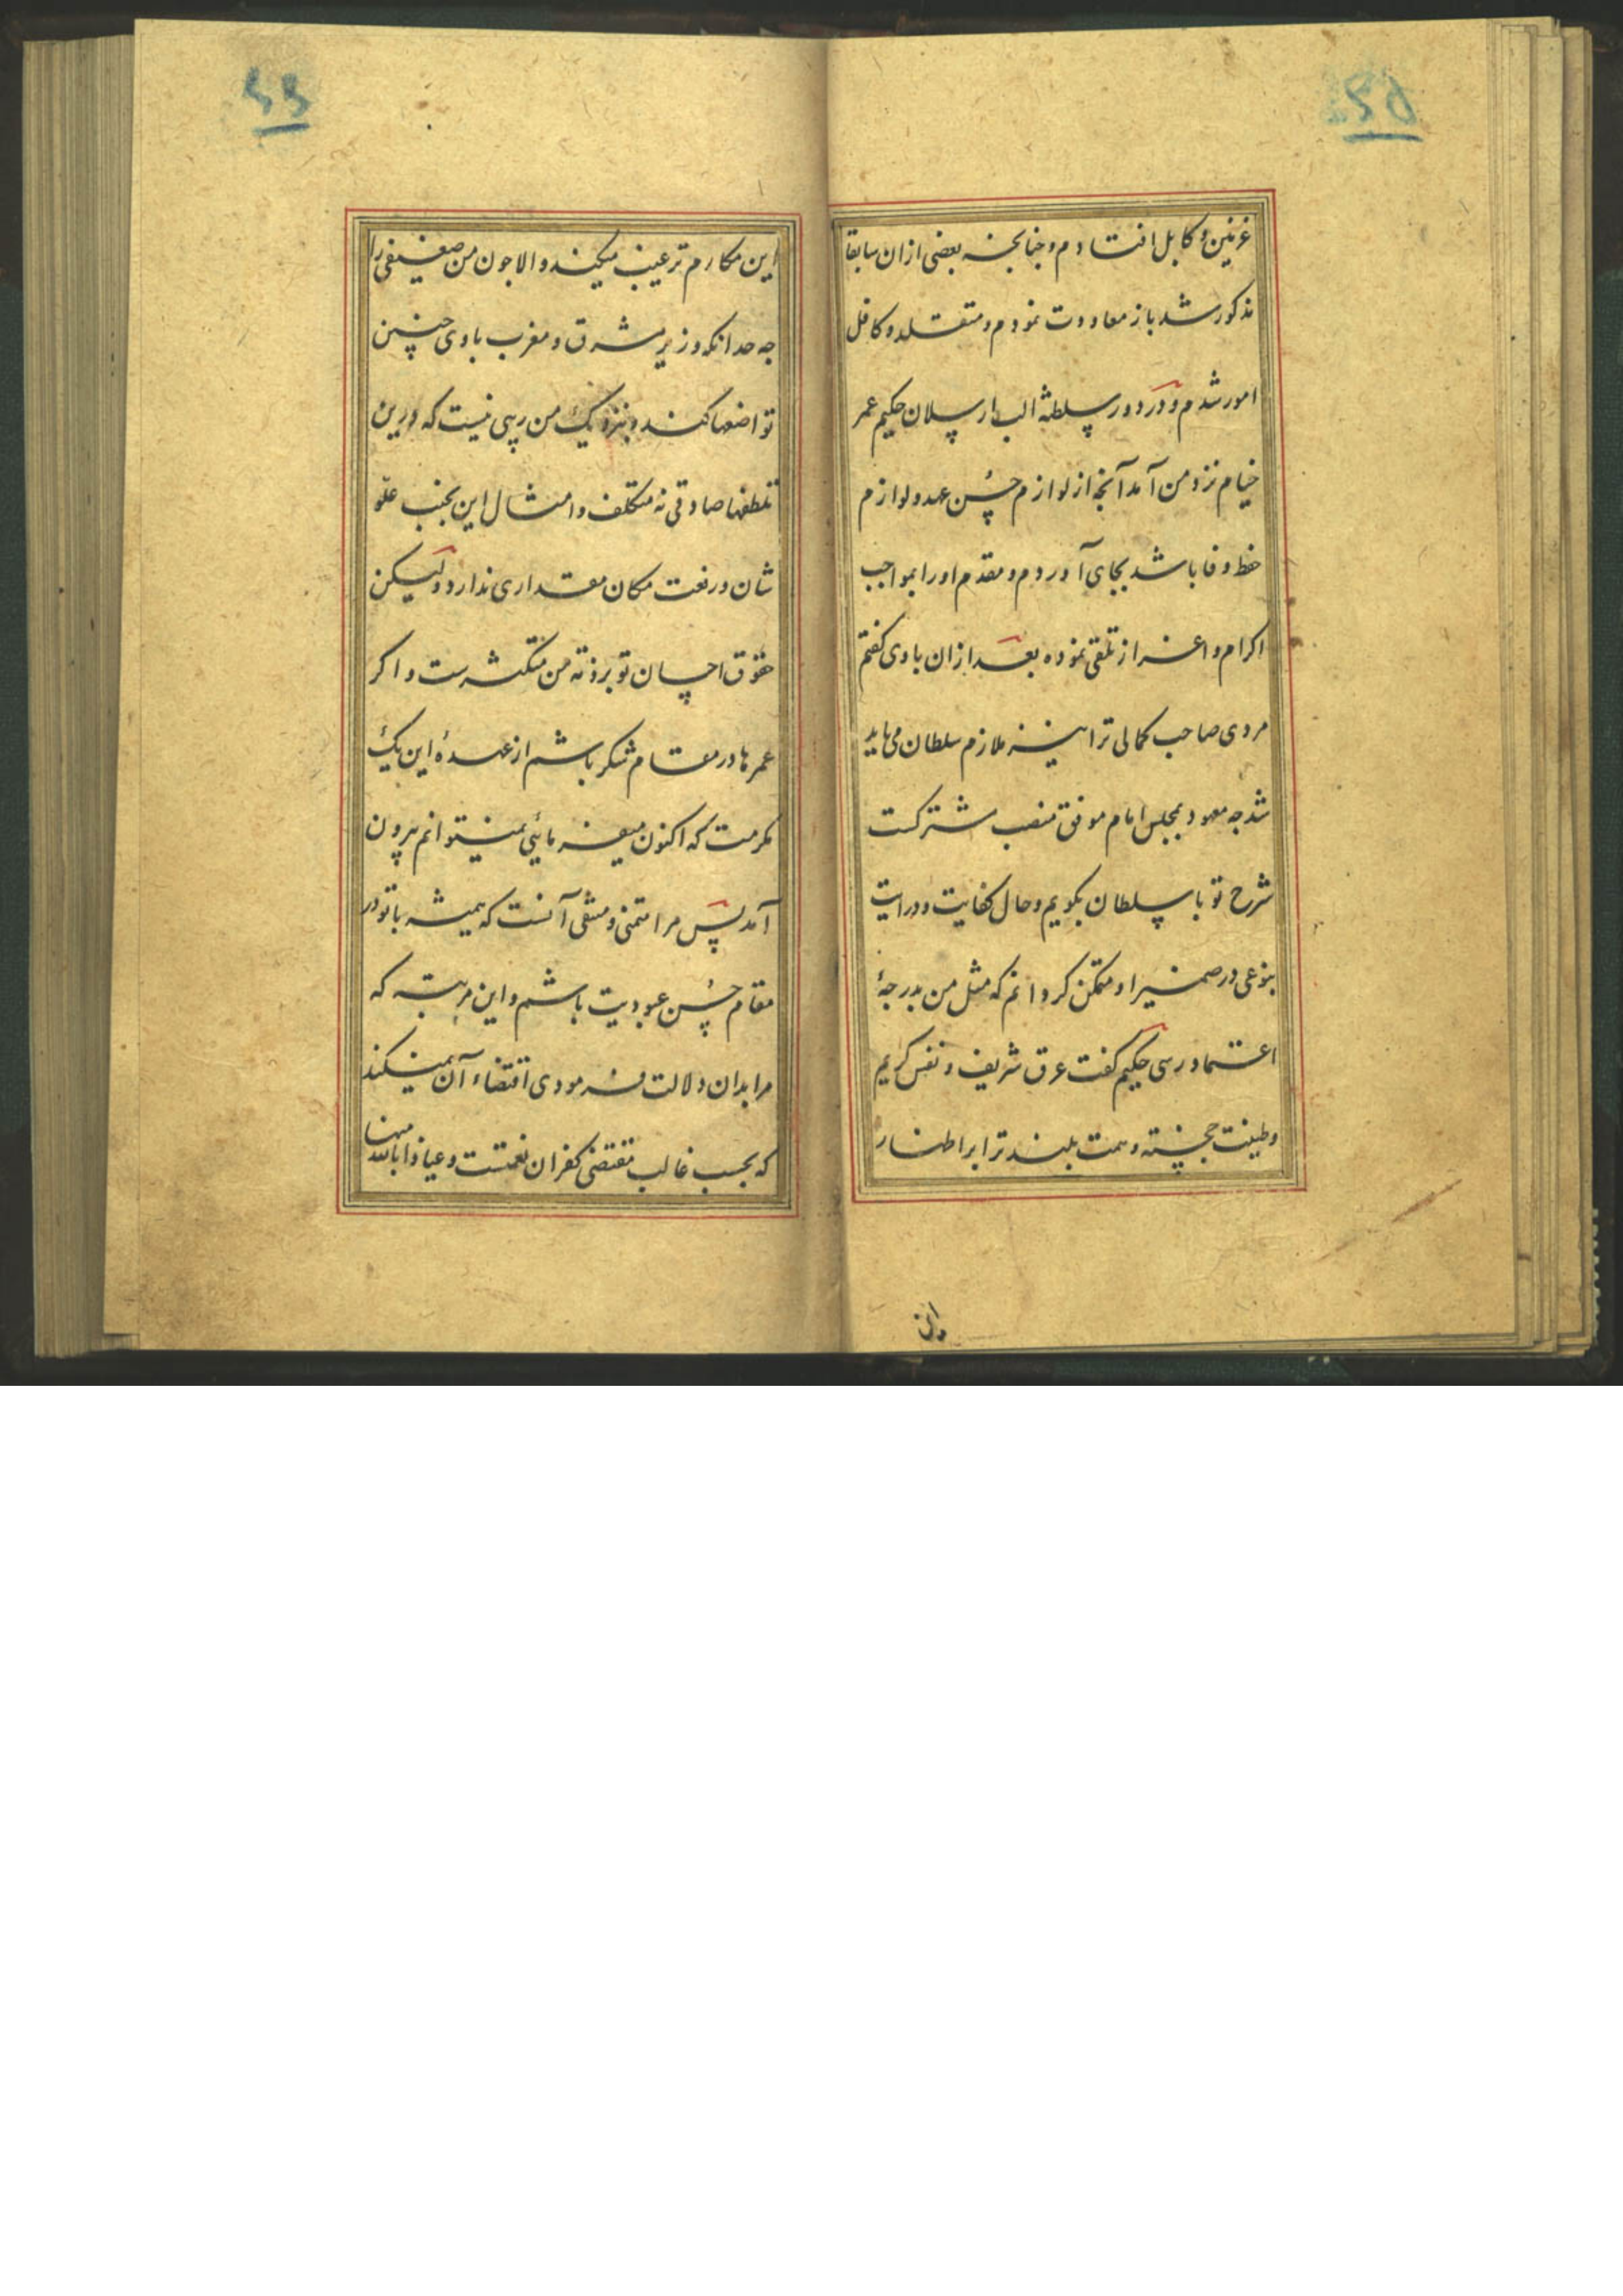 ۲۵
غزنین و کابل افتادم و چنانچه بعضی ازان سابقا
مذکور شد باز معاودت نمودم و متقلد و کافل
امور شدم و در دور سلطنة الب ارسلان حکیم عمر
خیام نزد من آمد آنچه از لوازم حسن عهد و لوازم
حفظ وفا باشد بجای آوردم و مقدم او را بمواجب
اکرام و اعزاز تلقی نموده بعد ازان با وی کفتم
مردی صاحب کمالی ترا نیز ملازم سلطان می باید
شد جه معهود بمجلس امام موفق منصب مشترکست
شرح تو با سلطان بکویم و حال کفایت و درایت
بنوعی در ضمیر او متمکن کردانم که مثل من بدرجهٔ
اعتماد رسی حکیم کفت عرق شریف و نفس کریم
و طینت خجسته و همت بلند ترا بر اظهار
این
۲۶
این مکارم ترغیب میکند و الا جون من ضعیفی را
جه حد انکه وزیر مشرق و مغرب با وی چنین
تواضعها کند و بنزدیک من ریبی نیست که درین
تلطفها صادقی نه متکلف و امثال این بجنب علو
شان و رفعت مکان مقداری ندارد و لیکن
حقوق احسان تو بر ذمه من متکثرست و اکر
عمرها در مقام شکر باشم از عهدهٔ این یک
مکرمت که اکنون میفرمائی نمیتوانم بیرون
آمد پس مرا متمنی و مبتغی آنست که همیشه با تو در
مقام حسن عبودیت باشم و این مرتبه که
مرا بدان دلالت فرمودی اقتضاء آن نمیکند
که بحسب غالب مقتضی کفران نعمتست و عیاذا بالله منها